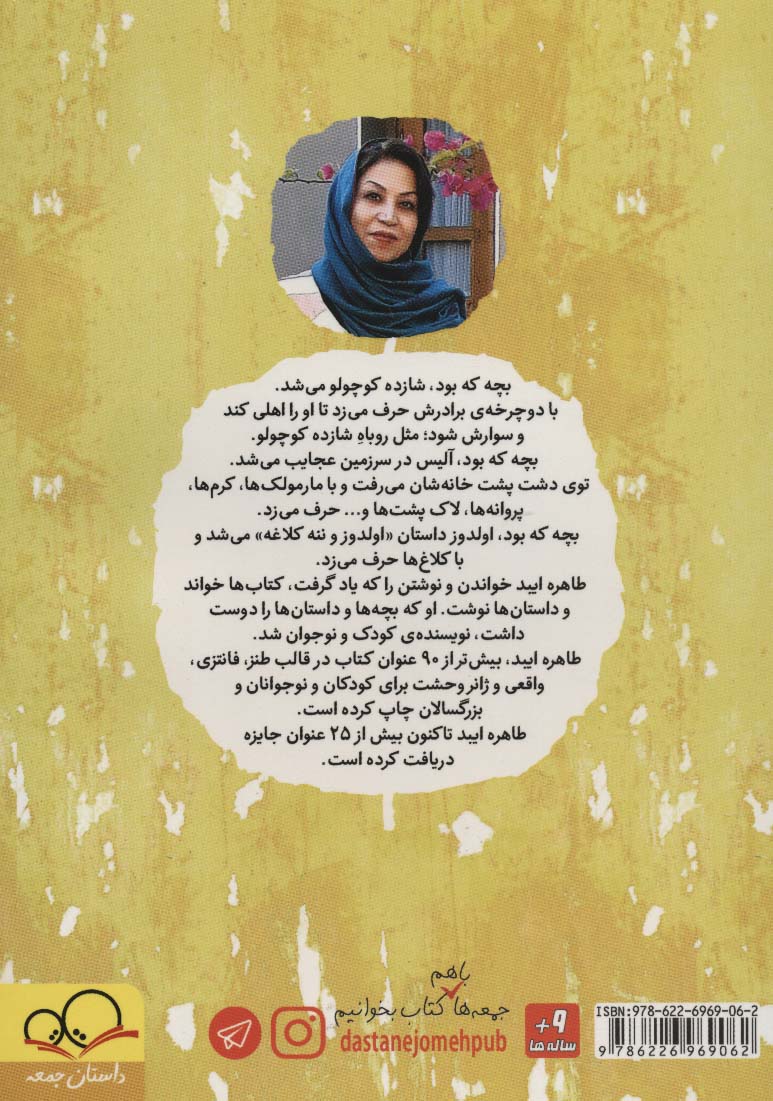 بچه که بود، شازده کوچولو می‌شد.
با دوچرخه‌ی برادرش حرف می‌زد تا او را اهلی کند
و سوارش شود؛ مثل روباهِ شازده کوچولو.
بچه که بود، آلیس در سرزمین عجایب می‌شد.
توی دشت پشت خانه‌شان می‌رفت و با مارمولک‌ها، کرم‌ها،
پروانه‌ها، لاک پشت‌ها و... حرف می‌زد.
بچه که بود، اولدوز داستان «اولدوز و ننه کلاغه» می‌شد و
با کلاغ‌ها حرف می‌زد.
طاهره ایبد خواندن و نوشتن را که یاد گرفت، کتاب‌ها خواند
و داستان‌ها نوشت. او که بچه‌ها و داستان‌ها را دوست
داشت، نویسنده‌ی کودک و نوجوان شد.
طاهره ایبد، بیش‌تر از ۹۰ عنوان کتاب در قالب طنز، فانتزی،
واقعی و ژانر وحشت برای کودکان و نوجوانان و
بزرگسالان چاپ کرده است.
طاهره ایبد تاکنون بیش از ۲۵ عنوان جایزه
دریافت کرده است.
باهم
جمعه‌ها کتاب بخوانیم
dastanejomehpub
+۹
ساله ها
ISBN: 978-622-6969-06-2
9 786226 969062
داستان جمعه